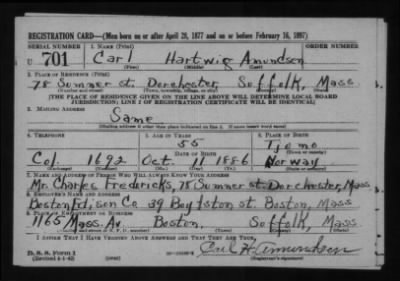 REGISTRATION CARD—(Men born on or after April 28, 1877 and on or before February 16, 1897)
SERIAL NUMBER 1. NAME (Print) ORDER NUMBER
U 701 Carl Hartwig Amundsen
2. PLACE OF RESIDENCE (Print)
78 Sumner st. Dorchester, Suffolk, Mass
[THE PLACE OF RESIDENCE GIVEN ON THE LINE ABOVE WILL DETERMINE LOCAL BOARD
JURISDICTION; LINE 2 OF REGISTRATION CERTIFICATE WILL BE IDENTICAL]
3. MAILING ADDRESS
Same
[Mailing address if other than place indicated on line 2. If same insert word same]
4. TELEPHONE 5. AGE IN YEARS 6. PLACE OF BIRTH
55 Tjomo
DATE OF BIRTH
Col. 1692 Oct. 11 1886 Norway
7. NAME AND ADDRESS OF PERSON WHO WILL ALWAYS KNOW YOUR ADDRESS
Mr. Charles Fredericks, 78 Sumner st. Dorchester, Mass
8. EMPLOYER'S NAME AND ADDRESS
Boston Edison Co 39 Boylston st. Boston, Mass
9. PLACE OF EMPLOYMENT OR BUSINESS
1165 Mass. Av Boston, Suffolk, Mass
I AFFIRM THAT I HAVE VERIFIED ABOVE ANSWERS AND THAT THEY ARE TRUE.
D. S. S. Form 1 Carl H. Amundsen
(Registrant's signature)